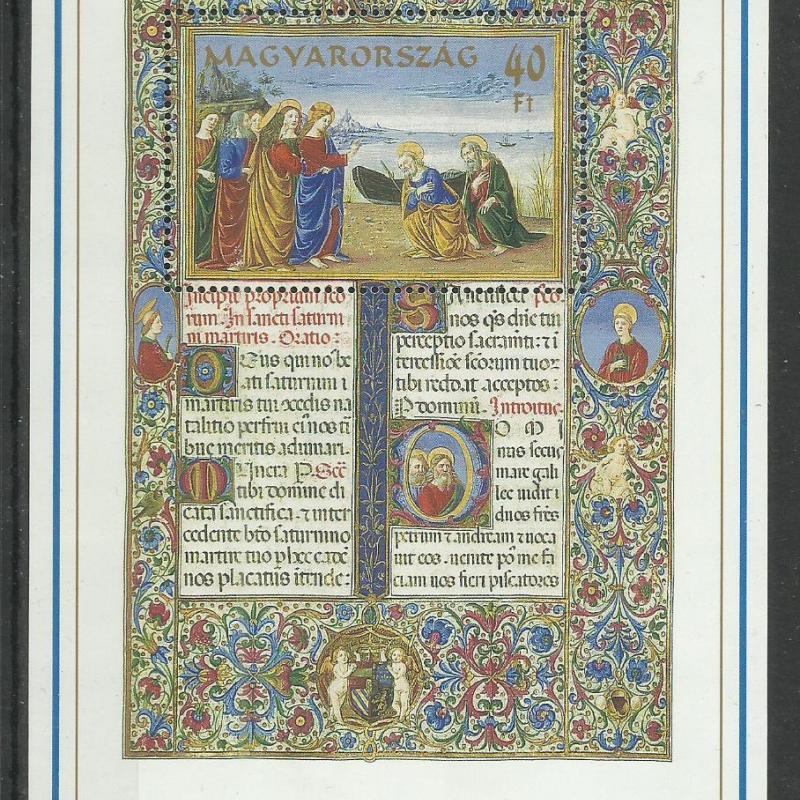 MAGYARORSZÁG 40
Ft
Incipit proprium sco
rum. In sancti saturni
ni martiris. Oratio:
Deus qui nos be
ati saturnini
martiris tui xcedis na
talitio perfrui ei nos ti
bue meritis adiuvari.
Munera
tibi domine di
cata sanctifica et inter
cedente bto saturnino
martire tuo
nos placatus itende:
Sanctificet
nos qs dne tui
perceptio sacramti: et i
tercessioe scorum tuoz
tibi reddat acceptos:
P dominū. Introitus
DOMI
nus secus
mare gali
lee vidit i
duos fres
petrum et andream et voca
uit eos. venite po me fa
ciam uos fieri piscatores